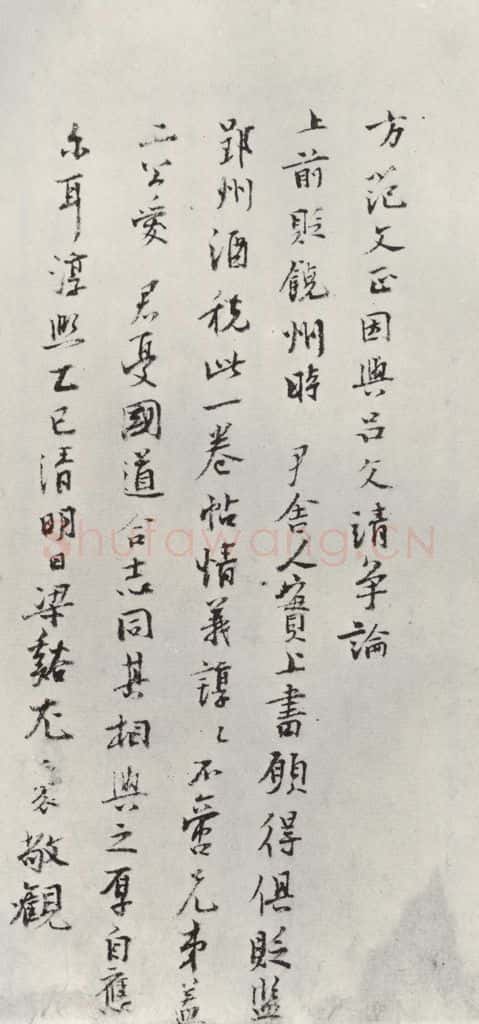 方范文正因與呂文靖争論
上前貶饒州時 尹舍人實上書願得俱貶監
郢州酒税此一卷帖情義諄〻不啻兄弟蓋
二公愛 君憂國道合志同其相與之厚自應
尔耳淳熙乙巳清明日梁谿尤袤敬觀
Shufawang.CN